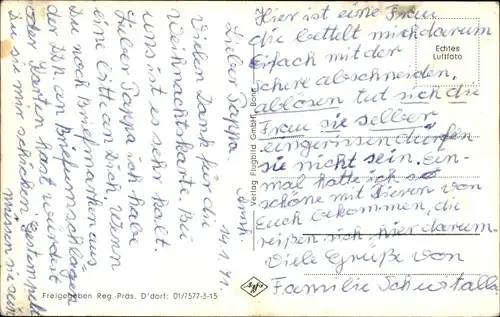 14.1.71.
Lieber Pappa.
Vielen Dank für die
Weihnachtskarte. Bei
uns ist es sehr kalt.
Lieber Pappa ich habe
eine bitte an Dich, wenn
Du noch Briefmarken aus
der DDR an Briefumschlägen
oder Karten hast würdest
Du sie mir schicken. Gestempelt
müssen sie sein
Hier ist eine Frau
die bettelt mich darum
Einfach mit der
chere abschneiden,
ablösen tut sich die
Frau sie selber
eingerissen dürfen
sie nicht sein. Ein-
mal hatte ich so
schöne mit Tieren von
Euch bekommen, die
reißen sich hier darum.
Viele Grüße von
Familie Schustalla
Echtes
Luftfoto
Verlag Flugbild GmbH., Bonn
Agfa
Freigegeben Reg.-Präs. D'dorf: 01/7577-3-15